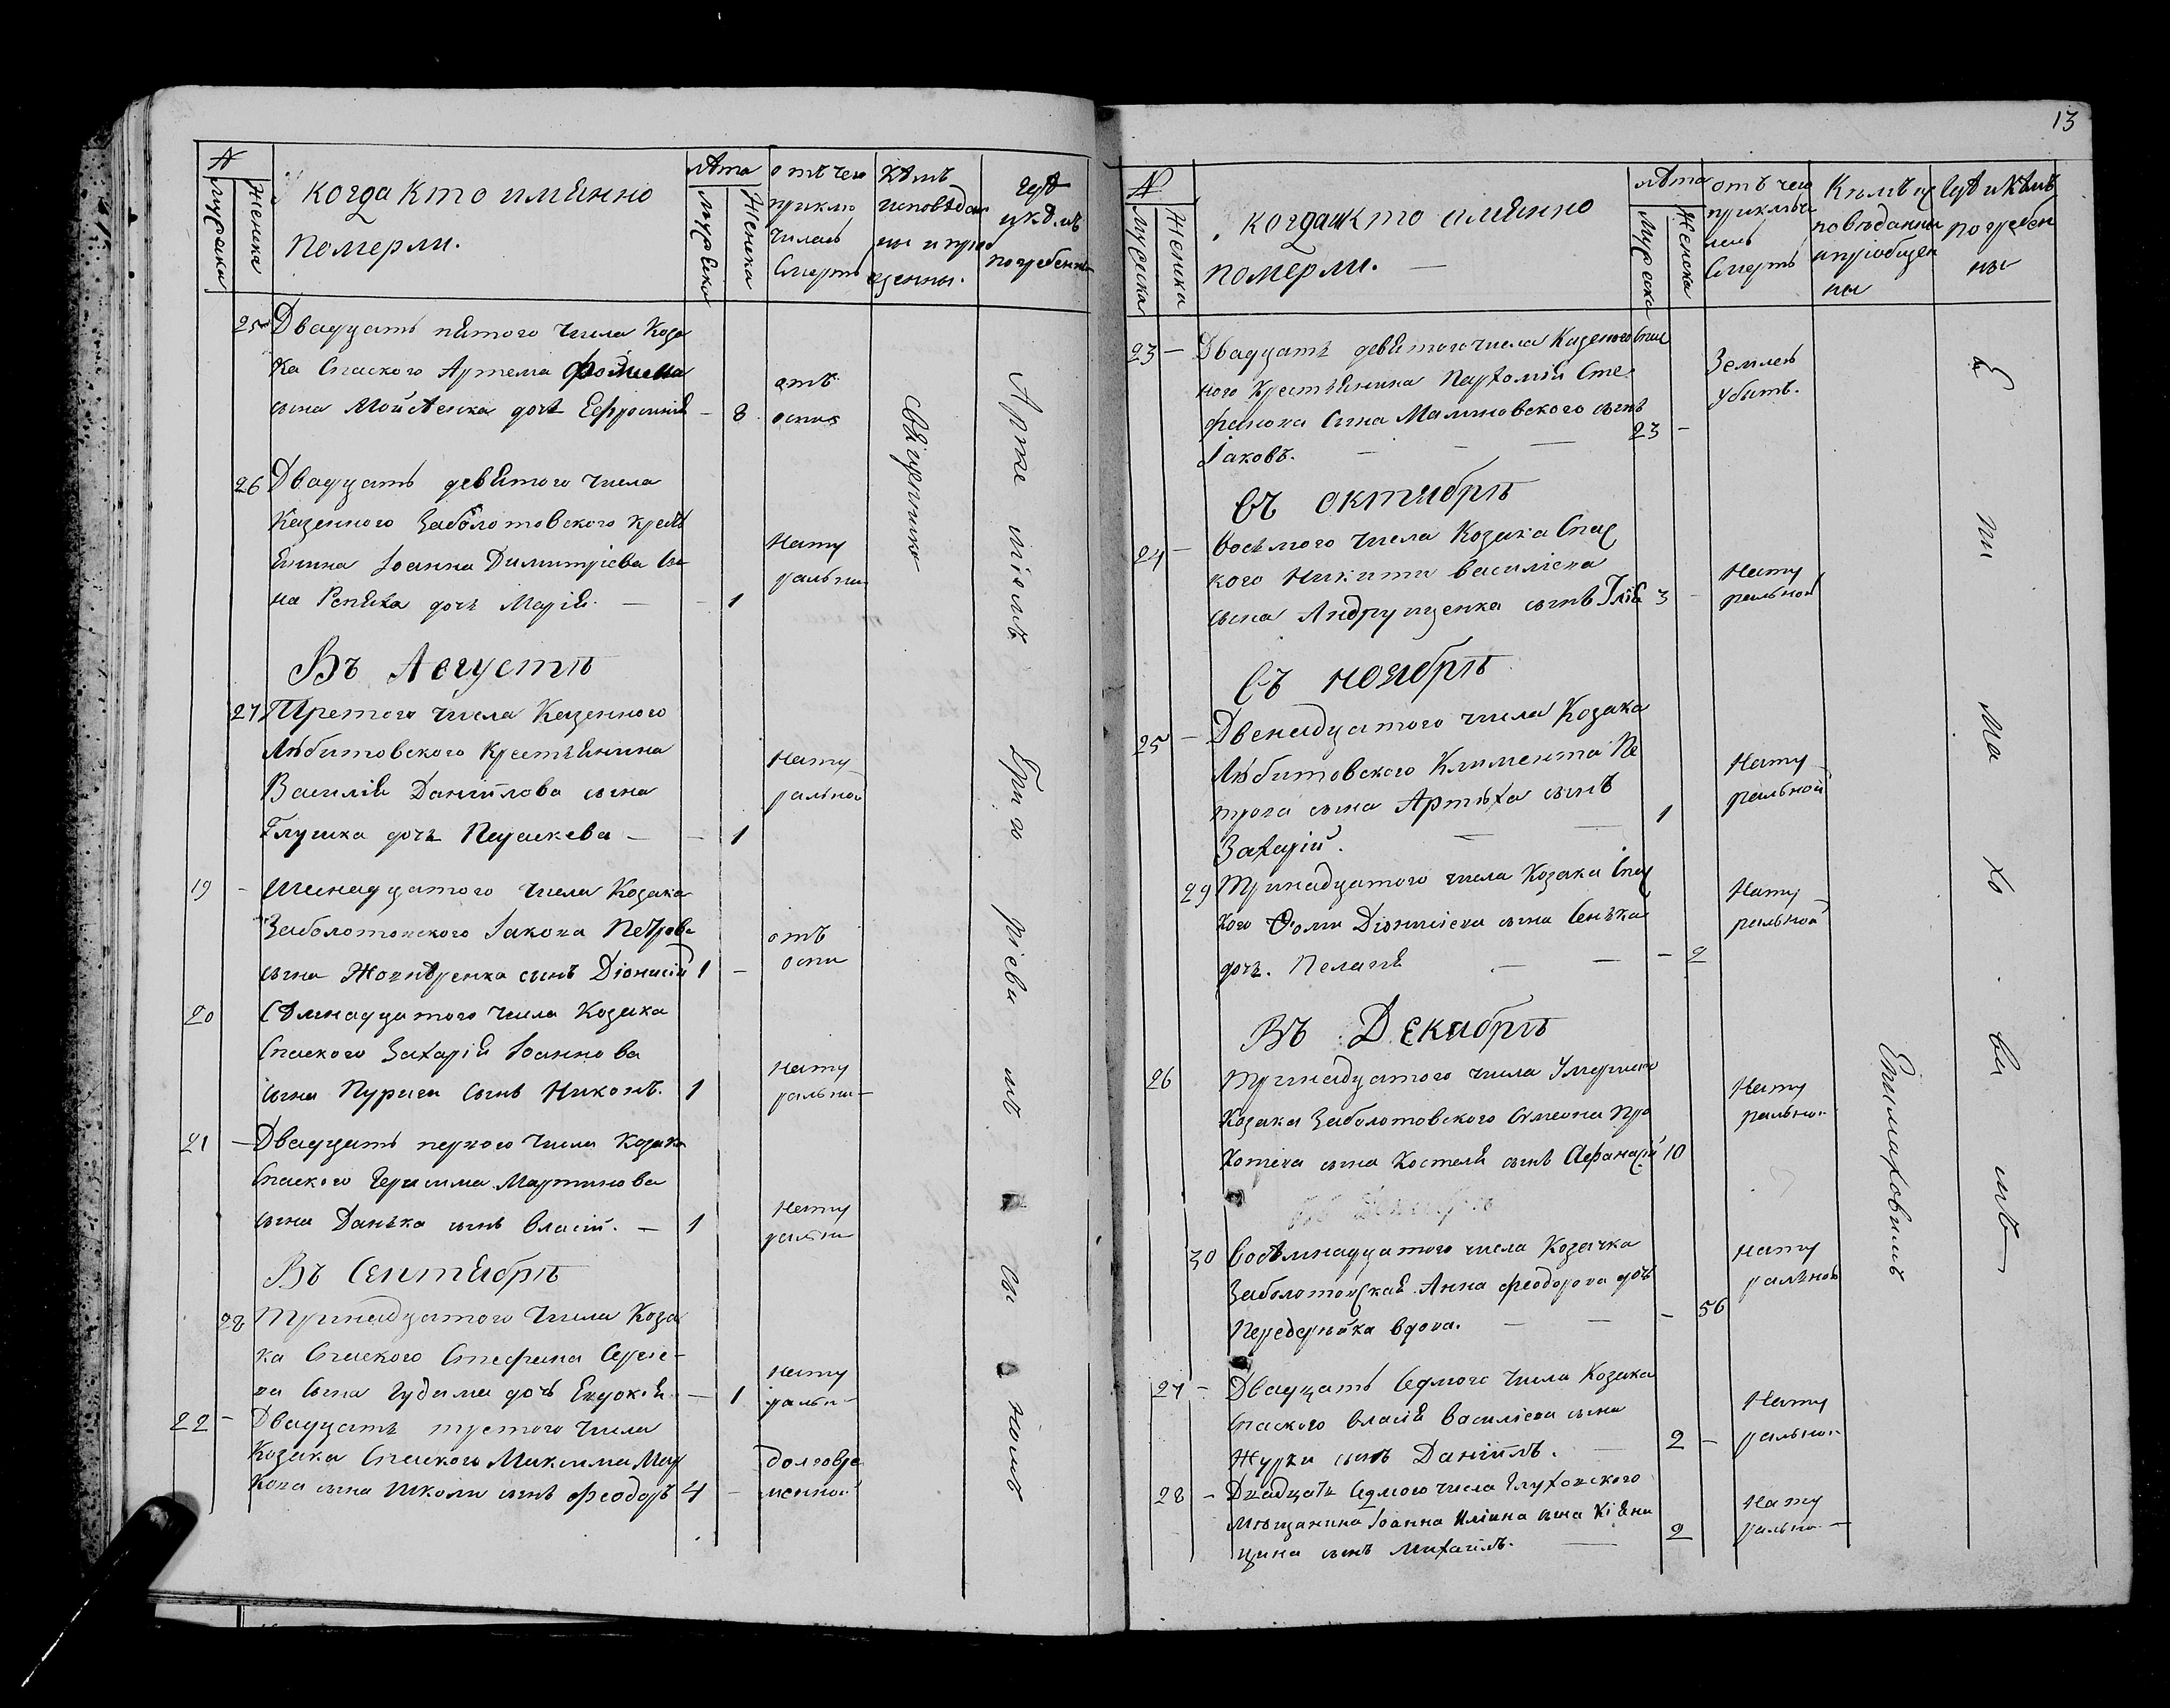 13
№
Мужеска
Женска
когда кто имѣнно
померли.
лѣта
Мужеска
Женска
отъ чего
приклю
чилась
Смерть
Кѣмъ
исповѣдан
ны и при
щенны.
гдѣ
и кѣмъ
погребенны
25 Двадцать пятого числа Коза
ка Спаского Артема Фомина
сына Мойсенка дочь Ефросинія – 8 отъ
оспи
26 Двадцать девятого числа
Казенного Заболотовского кресть
янина Іоанна Димитріева сы
на Репяха дочь Марія. – – 1 Нату
ральни
Въ Августѣ
27 Третого числа Казенного
Любитовского Крестьянина
Василія Даніилова сына
Глушка дочь Параскева – – 1 Нату
ральной
19 – Шинадцатого числа Козака
Заболотовского Іакова Петрова
сына сынъ Діонисій 1 – отъ
оспи
20 Сѣмнадцатого числа Козака
Спаского Захарія Іоаннова
сына Пурига сынъ Никонъ. 1 Нату
ральни
21 – Двадцать первого числа Козака
Спаского Мартинова
сына Данька сынъ Власій. – 1 Нату
ральни
Въ Сентябрѣ
28 Тринадцатого числа Коза
ка Спаского Стефана Сергіе-
ва сына Гудима дочь Евдокія. – 1 Нату
ральн
22 – Двадцать третого числа
Козака Спаского Максима Мар
кова сына Школи сынъ Феодоръ 4 – долговре
менной
Священникъ
Григоріевимъ
№
Мужеска
Женска
когда кто имянно
померли. –
лѣта
Мужеска
Женска
отъ чего
приключи
лась
Смерть
Кѣмъ ис
повѣданны
и пріобщен
ны
Гдѣ и кѣмъ
погребен
ны
23 – Двадцать девятого числа Казенного Спас
кого Крестьянина Парѳомія Сте
фанова сына Малиновского сынъ
Іаковъ. – – – 23 – Землею
убитъ.
Въ октябрѣ
24 – Восьмого числа Козака Спас
кого Никити Василіева
сына Андрущенка сынъ Ілія 3 – Нату
ральной
Въ ноябрѣ
25 – Двенадцатого числа Козака
Любитовского Климента Пе
трова сына Артюха сынъ
Захарій. – – 1 Нату
ральной
29 Тринадцатого числа Козака Спас
кого Ѳоми Діонисіева сына Сенька
дочь. Пелагія – – – 2 Нату
ральной
Въ Декабрѣ
26 Тринадцатого числа Умершого
Козака Заболотовского Симеона Про
копіева сына Костеля сынъ Афанасій 10 Нату
ральной
30 Восѣмнадцатого числа Козачка
Заболотовская Анна Феодорова дочь
вдова. – – – 56 нату
ральной
27 – Двадцать Седмого числа Козака
Спаского Власія Василіева сына
Журки сынъ Даніилъ. – 2 – Нату
ральной
28 – Двадцать Седмого числа Глуховского
Мѣщанина Іоанна Иліина сына Кіяни
цина сынъ Михаилъ. – 2 Нату
ральной –
Епимаховимъ
Епимаховимъ